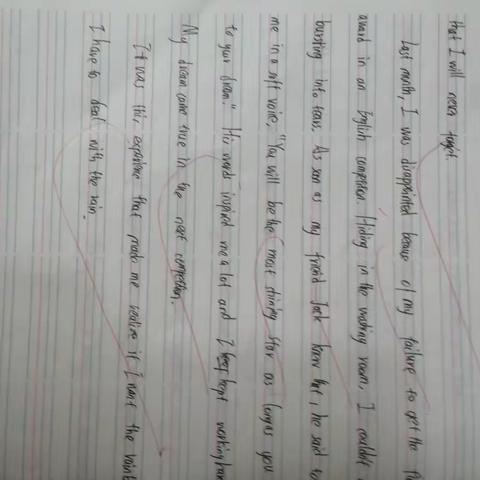 that I will never forget.
Last month, I was disappointed because of my failure to get the
award in an English competition. Hiding in the washing room, I couldn't
bursting into tears. As soon as my friend Jack knew that, he said to
me in a soft voice, "You will be the most shining star as long as you
to your dream." His words inspired me a lot and I kept working
My dream came true in the next competition.
It was this experience that made me realize if I want the
I have to deal with the rain.